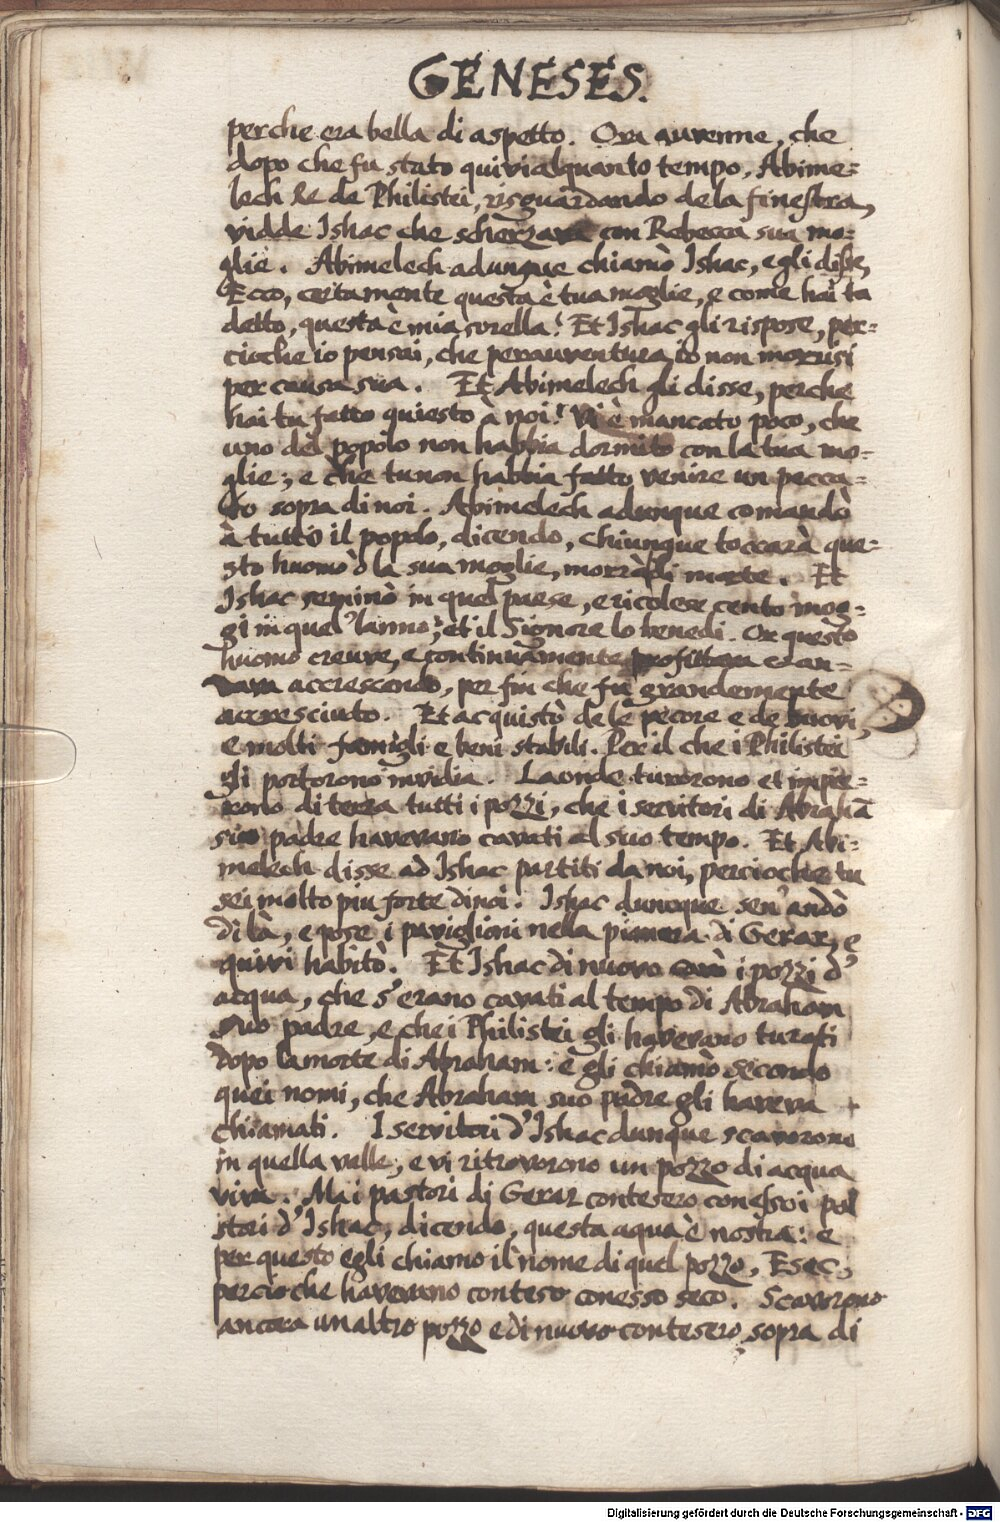 GENESES.
perche era bella di aspetto. Ora auvenne, che
dopo che fu stato quivi alquanto tempo, Abime-
lech Re de Philistei, risguardando de la finestra,
vidde Ishac che scherzava con Rebecca sua mo-
glie. Abimelech adunque chiamò Ishac, e gli disse,
Ecco, certamente questa è tua moglie, e come hai tu
detto, questa è mia sorella? Et Ishac gli rispose, per-
cioche io pensai, che perauventura io non morissi
per causa sua. Et Abimelech gli disse, perche
hai tu fatto questo à noi? Vi è mancato poco, che
uno del popolo non habbia dormito con la tua mo-
glie; e che tu non habbia fatto venire un pecca-
to sopra di noi. Abimelech adunque comandò
à tutto il popolo, dicendo, chiunque toccarà que-
sto huomo ò la sua moglie, morrà di morte. Et
Ishac seminò in quel paese, e ricolese cento mog-
gi in quel'lanno; et il Signore lo benedi. Or questo
huomo creuve, e continuamente et an-
dava accrescendo, per fin che fu grandemente
accresciuto. Et acquistò de le pecore e de buovi,
e molti famigli e beni stabili. Per il che i Philistei
gli portorono invidia. Laonde turorono et impie-
rono di terra tutti i pozzi, che i servitori di Abrahā
suo padre havevano cavati al suo tempo. Et Abi-
melech disse ad Ishac partiti da noi, percioche tu
sei molto piu forte di noi. Ishac dunque sen'andò
di là, e pose i paviglioni nella pianura di Gerar, e
quivi habitò. Et Ishac di nuovo cavò i pozzi d'
acqua, che s'erano cavati al tempo di Abraham
suo padre, e che i Philistei gli havevano turati
dopo la morte di Abraham: e gli chiamò secondo
quei nomi, che Abraham suo padre gli haveva
chiamati. I servitori d'Ishac dunque scavorono
in quella valle, e vi ritrovorono un pozzo di acqua
viva. Ma i pastori di Gerar contesero con essoi pa
stori d'Ishac, dicendo, questa aqua è nostra: e
per questo egli chiamo il nome di quel pozzo, Esec,
percioche havevano conteso conesso seco. Scavorono
ancora un altro pozzo e di nuovo contesero sopra di
Digitalisierung gefördert durch die Deutsche Forschungsgemeinschaft - DFG